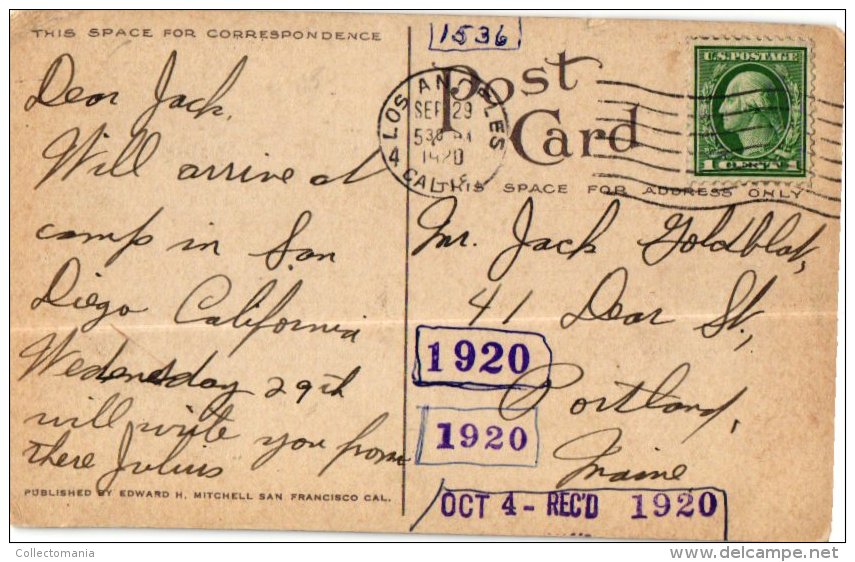 THIS SPACE FOR CORRESPONDENCE
Dear Jack,
Will arrive at
camp in San
Diego California
Wedensday 29th
will write you from
there Julius
PUBLISHED BY EDWARD H. MITCHELL SAN FRANCISCO CAL.
1536
Post
Card
THIS SPACE FOR ADDRESS ONLY
LOS ANGELES
SEP 29
530
1920
4 CALIF.
U.S. POSTAGE
1 CENT 1
Mr. Jack Goldblat,
41 Dear St.,
Portland,
Maine
1920
1920
OCT 4 - REC'D 1920
Collectomania
delcampe.net